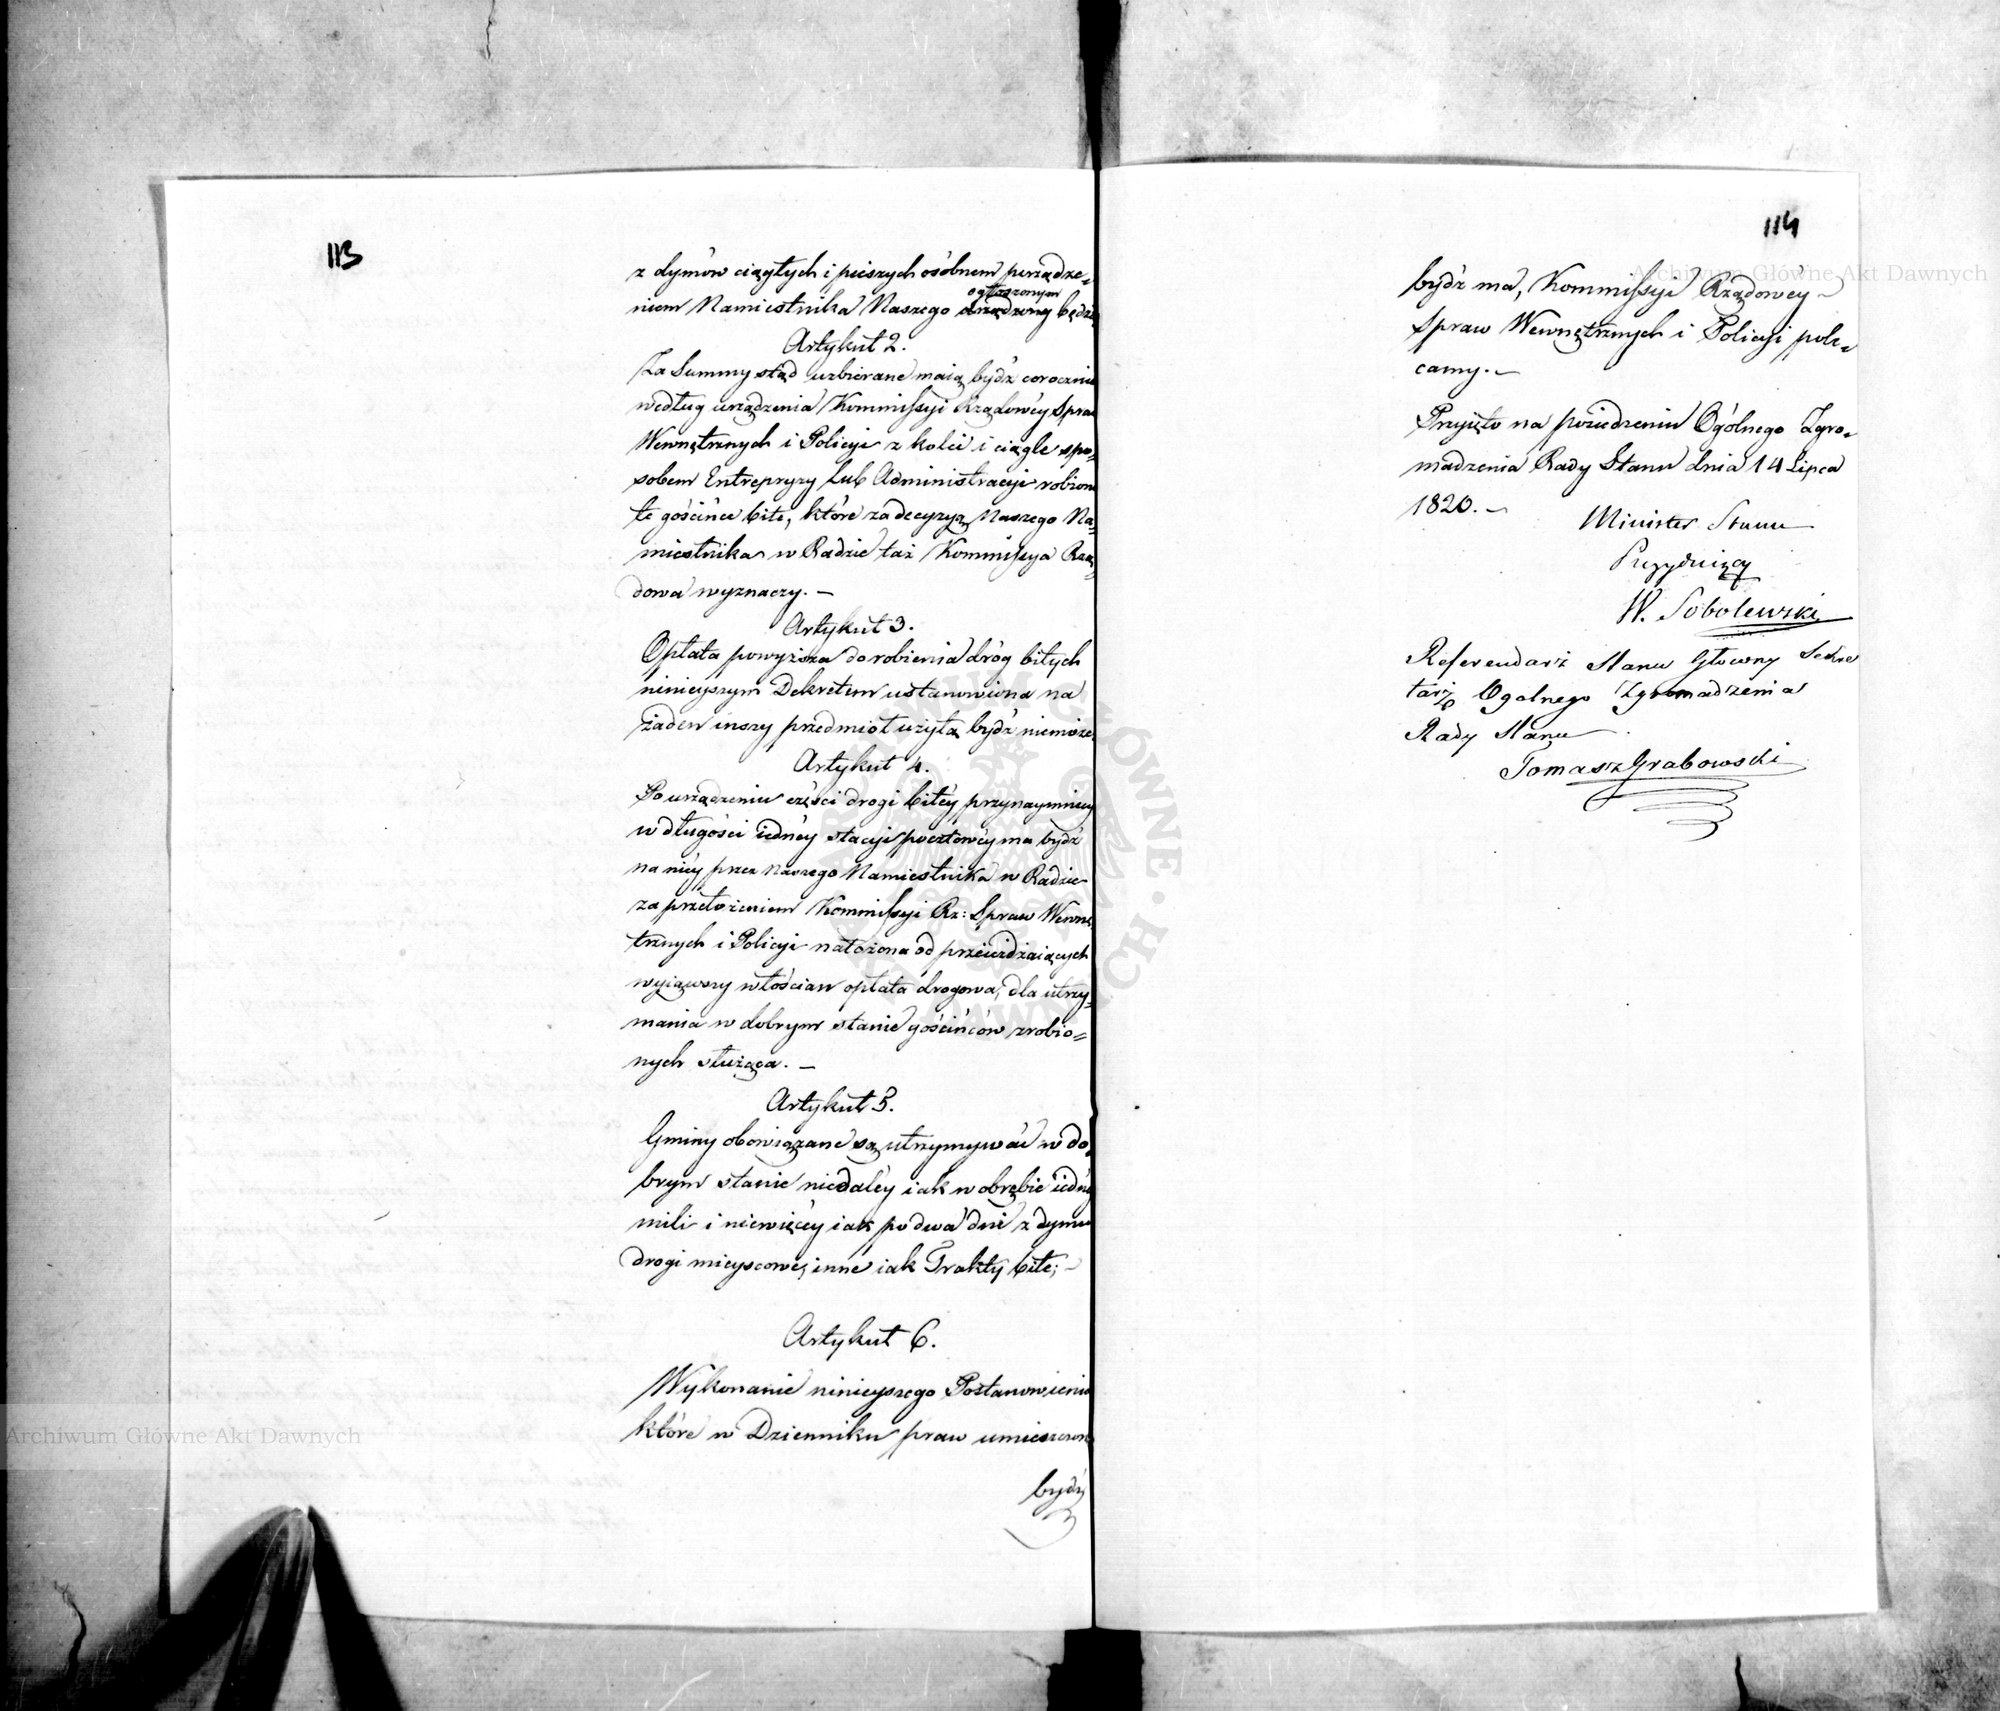 113
z dymów ciągłych i pieszych osóbnem porządze=
ogłoszonym
niem Namiestnika Naszego będzie
Artykuł 2.
Za Summy stąd uzbierane maią bydź corocznie
według urządzenia Kommissyi Rządowéy Spraw
Wewnętrznych i Policyi z kolei i ciągle spo=
sobem Entrepryzy lub Administracyi robione
te gościńce bite, które za decyzyą Naszego Na=
miestnika w Radzie taż Kommissya Rzą=
dowa wyznaczy. —
Artykuł 3.
Opłata powyższa do robienia dróg bitych
ninieyszym Dekretem ustanowiona na
żaden inszy przedmiot użytą bydź niemoże
Artykuł 4.
Po urządzeniu części drogi bitéy przynaymniey
w długości iednéy stacyi pocztowéy ma bydź
na niéy przez Naszego Namiestnika w Radzie
za przełożeniem Kommissyi Rz: Spraw Wewnę
trznych i Policyi nałożona od przeieżdzaiących
wyiąwszy włóścian opłata drogowa, dla utrzy=
mania w dobrym stanie gościńców zrobio=
nych służąca. —
Artykuł 5.
Gminy obowiązane są utrzymywać w do
brym stanie niedaléy iak w obrębie iednéy
mili i niewięcéy iak po dwa dni z dymu
drogi mieyscowe, inne iak Trakty bite; ~
Artykuł 6.
Wykonanie ninieyszego Postanowienia
które w Dzienniku praw umieszczone
bydź
114
bydź ma, Kommissyi Rządowéy ~
Spraw Wewnętrznych i Policyi pole=
camy. —
Przyięto na posiedzeniu Ogólnego Zgro=
madzenia Rady Stanu dnia 14 Lipca
1820. —
Minister Stanu
Prezyduiący
W. Sobolewski
Referendarz Stanu Głowny Sekre
tarz Ogolnego Zgromadzenia
Rady Stanu
Tomasz Grabowski
Archiwum Główne Akt Dawnych
Archiwum Główne Akt Dawnych